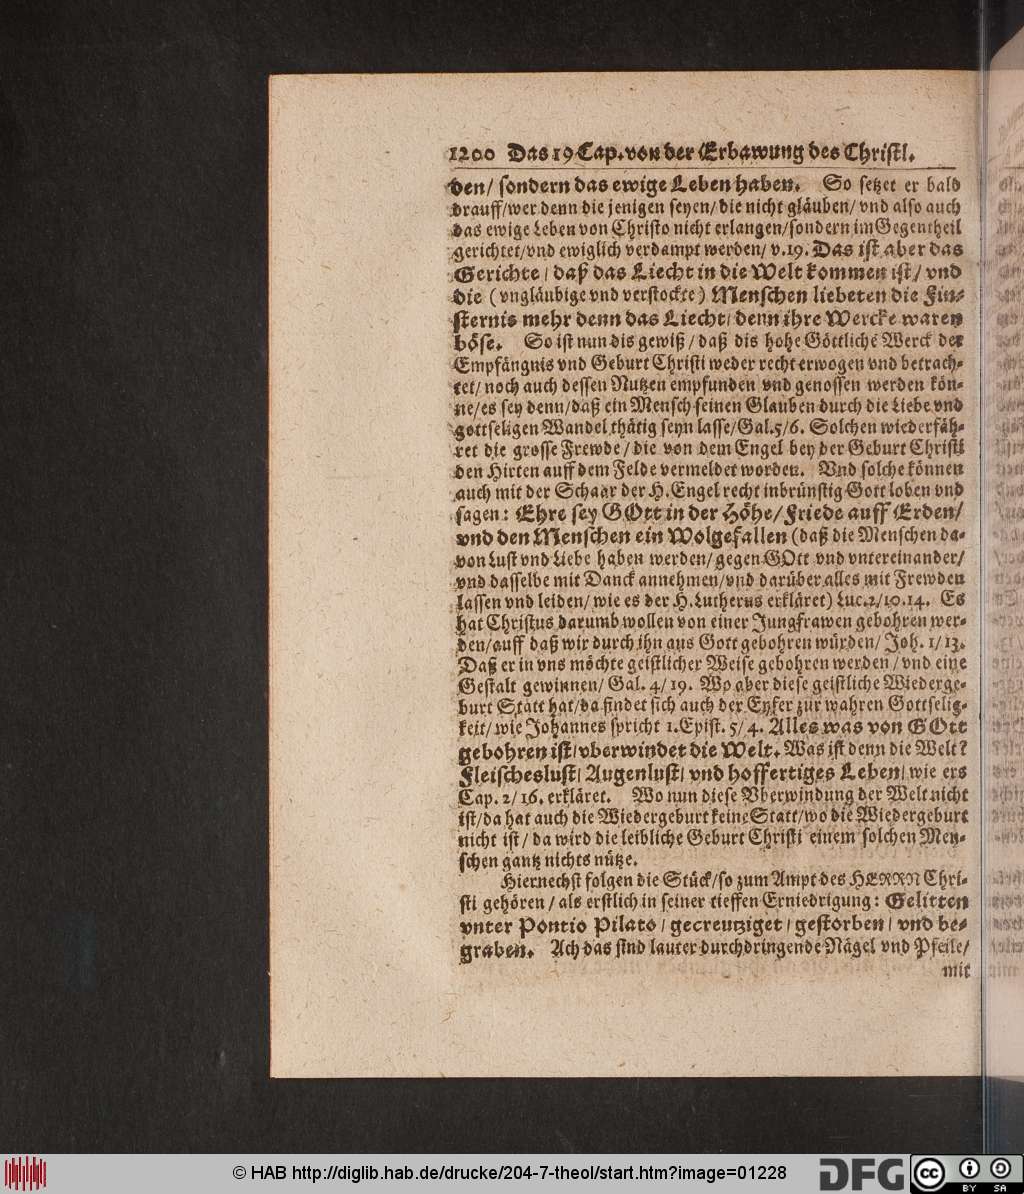 1200 Das 19 Cap. von der Erbawung des Christl.
den/ sondern das ewige Leben haben. So setzet er bald
drauff/wer denn die jenigen seyen/ die nicht gläuben/ vnd also auch
das ewige Leben von Christo nicht erlangen/sondern im Gegentheil
gerichtet/vnd ewiglich verdampt werden/ v.19. Das ist aber das
Gerichte/ daß das Liecht in die Welt kommen ist/ vnd
die (vngläubige vnd verstockte) Menschen liebeten die Fin-
sternis mehr denn das Liecht/ denn ihre Wercke waren
böse. So ist nun dis gewiß/ daß dis hohe Göttliche Werck der
Empfängnis vnd Geburt Christi weder recht erwogen vnd betrach-
tet/ noch auch dessen Nutzen empfunden vnd genossen werden kön-
ne/es sey denn/daß ein Mensch seinen Glauben durch die Liebe vnd
gottseligen Wandel thätig seyn lasse/Gal.5/6. Solchen wiederfäh-
ret die grosse Frewde/ die von dem Engel bey der Geburt Christi
den Hirten auff dem Felde vermeldet worden. Vnd solche können
auch mit der Schaar der H. Engel recht inbrünstig Gott loben vnd
sagen: Ehre sey GOtt in der Höhe/Friede auff Erden/
vnd den Menschen ein Wolgefallen (daß die Menschen da-
von Lust vnd Liebe haben werden/ gegen GOtt vnd vntereinander/
vnd dasselbe mit Danck annehmen/vnd darüber alles mit Frewden
lassen vnd leiden/ wie es der H. Lutherus erkläret) Luc.2/10.14. Es
hat Christus darumb wollen von einer Jungfrawen gebohren wer-
den/auff daß wir durch ihn aus Gott gebohren würden/ Joh. 1/13.
Daß er in vns möchte geistlicher Weise gebohren werden/ vnd eine
Gestalt gewinnen/ Gal. 4/19. Wo aber diese geistliche Wiederge-
burt Statt hat/da findet sich auch der Eyfer zur wahren Gottselig-
keit/ wie Johannes spricht 1. Epist. 5/4. Alles was von GOtt
gebohren ist/ vberwindet die Welt. Was ist denn die Welt?
Fleischeslust/ Augenlust/ vnd hoffertiges Leben/ wie ers
Cap. 2/16. erkläret. Wo nun diese Vberwindung der Welt nicht
ist/da hat auch die Wiedergeburt keine Statt/wo die Wiedergeburt
nicht ist/ da wird die leibliche Geburt Christi einem solchen Men-
schen gantz nichts nütze.
Hiernechst folgen die Stück/so zum Ampt des HERRN Chri-
sti gehören/ als erstlich in seiner tieffen Erniedrigung: Gelitten
vnter Pontio Pilato/ gecreutziget/ gestorben/ vnd be-
graben. Ach das sind lauter durchdringende Nägel vnd Pfeile/
mit
© HAB http://diglib.hab.de/drucke/204-7-theol/start.htm?image=01228
DFG
cc BY SA